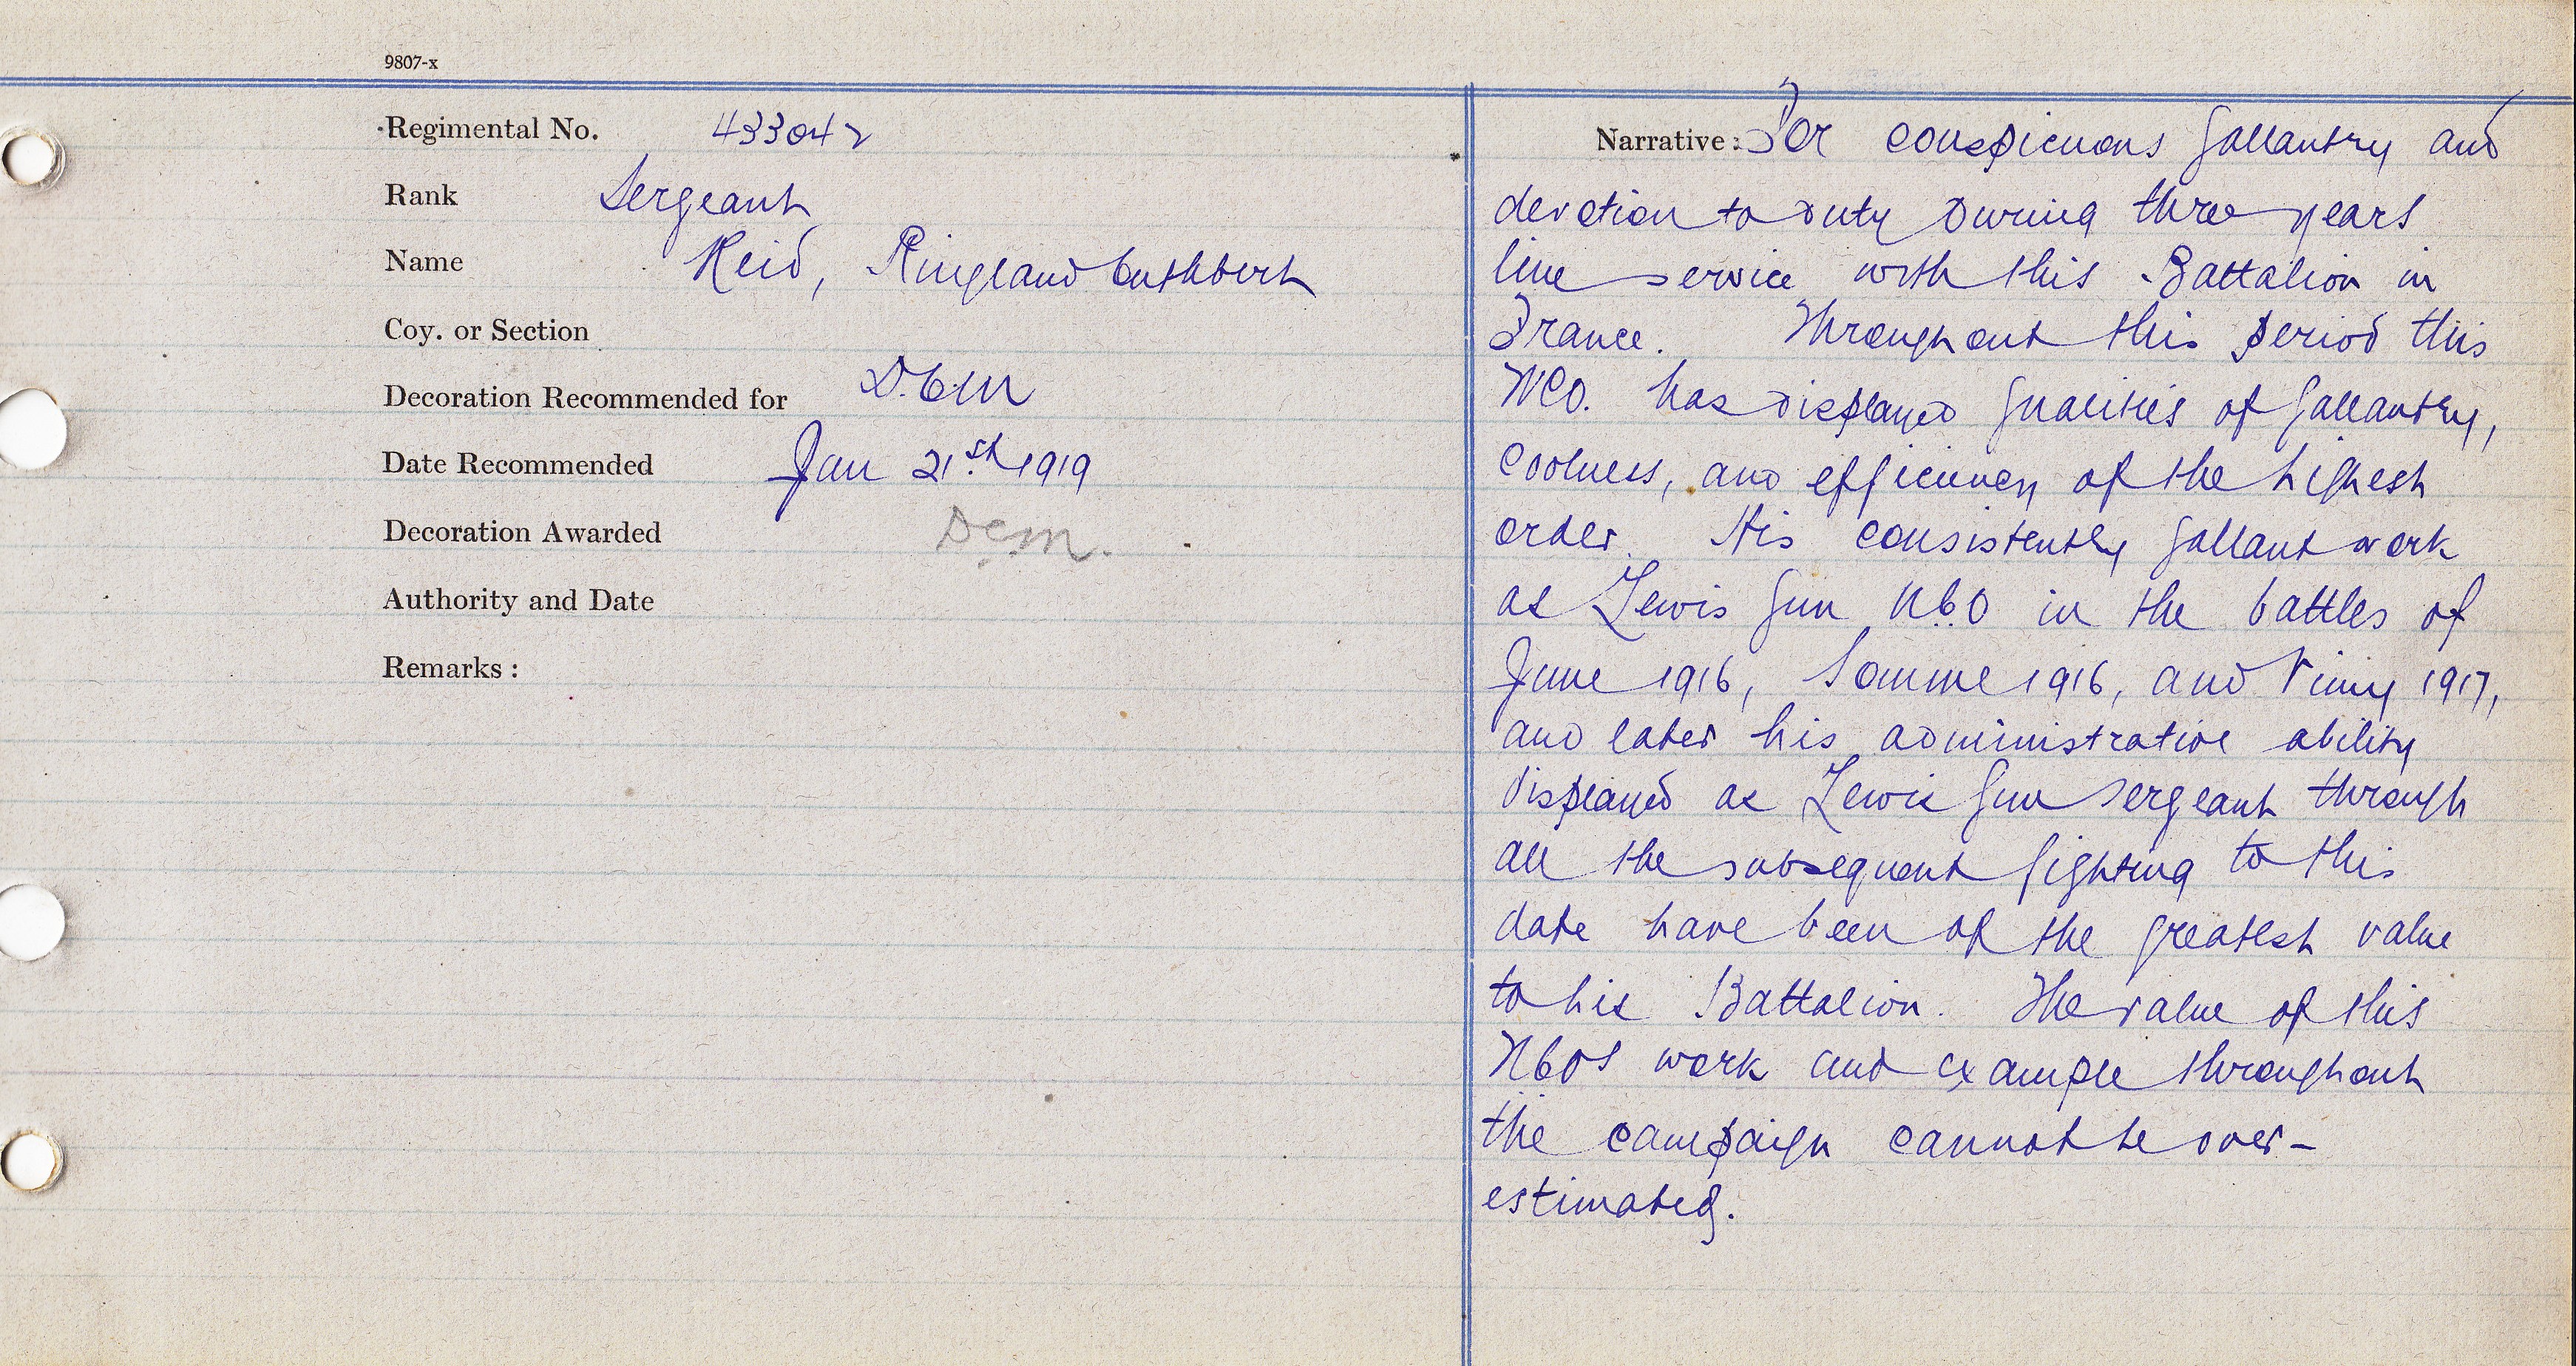 9807-x
Regimental No. 433042
Rank Sergeant
Name Reid, Ringland Cuthbert
Coy. or Section
Decoration Recommended for D.C.M
Date Recommended Jan 21st 1919
Decoration Awarded DCM.
Authority and Date
Remarks :
Narrative : For conspicuous gallantry and
devotion to duty during three years
line service with this Battalion in
France. Throughout this period this
NCO. has displayed qualities of gallantry,
coolness, and efficiency of the highest
order. His consistently gallant work
as Lewis Gun N.C.O in the battles of
June 1916, Somme 1916, and Vimy 1917,
and later his administrative ability
displayed as Lewis Gun Sergeant through
all the subsequent fighting to this
date have been of the greatest value
to his Battalion. The value of this
N.C.Os work and example throughout
the campaign cannot be over-
estimated.